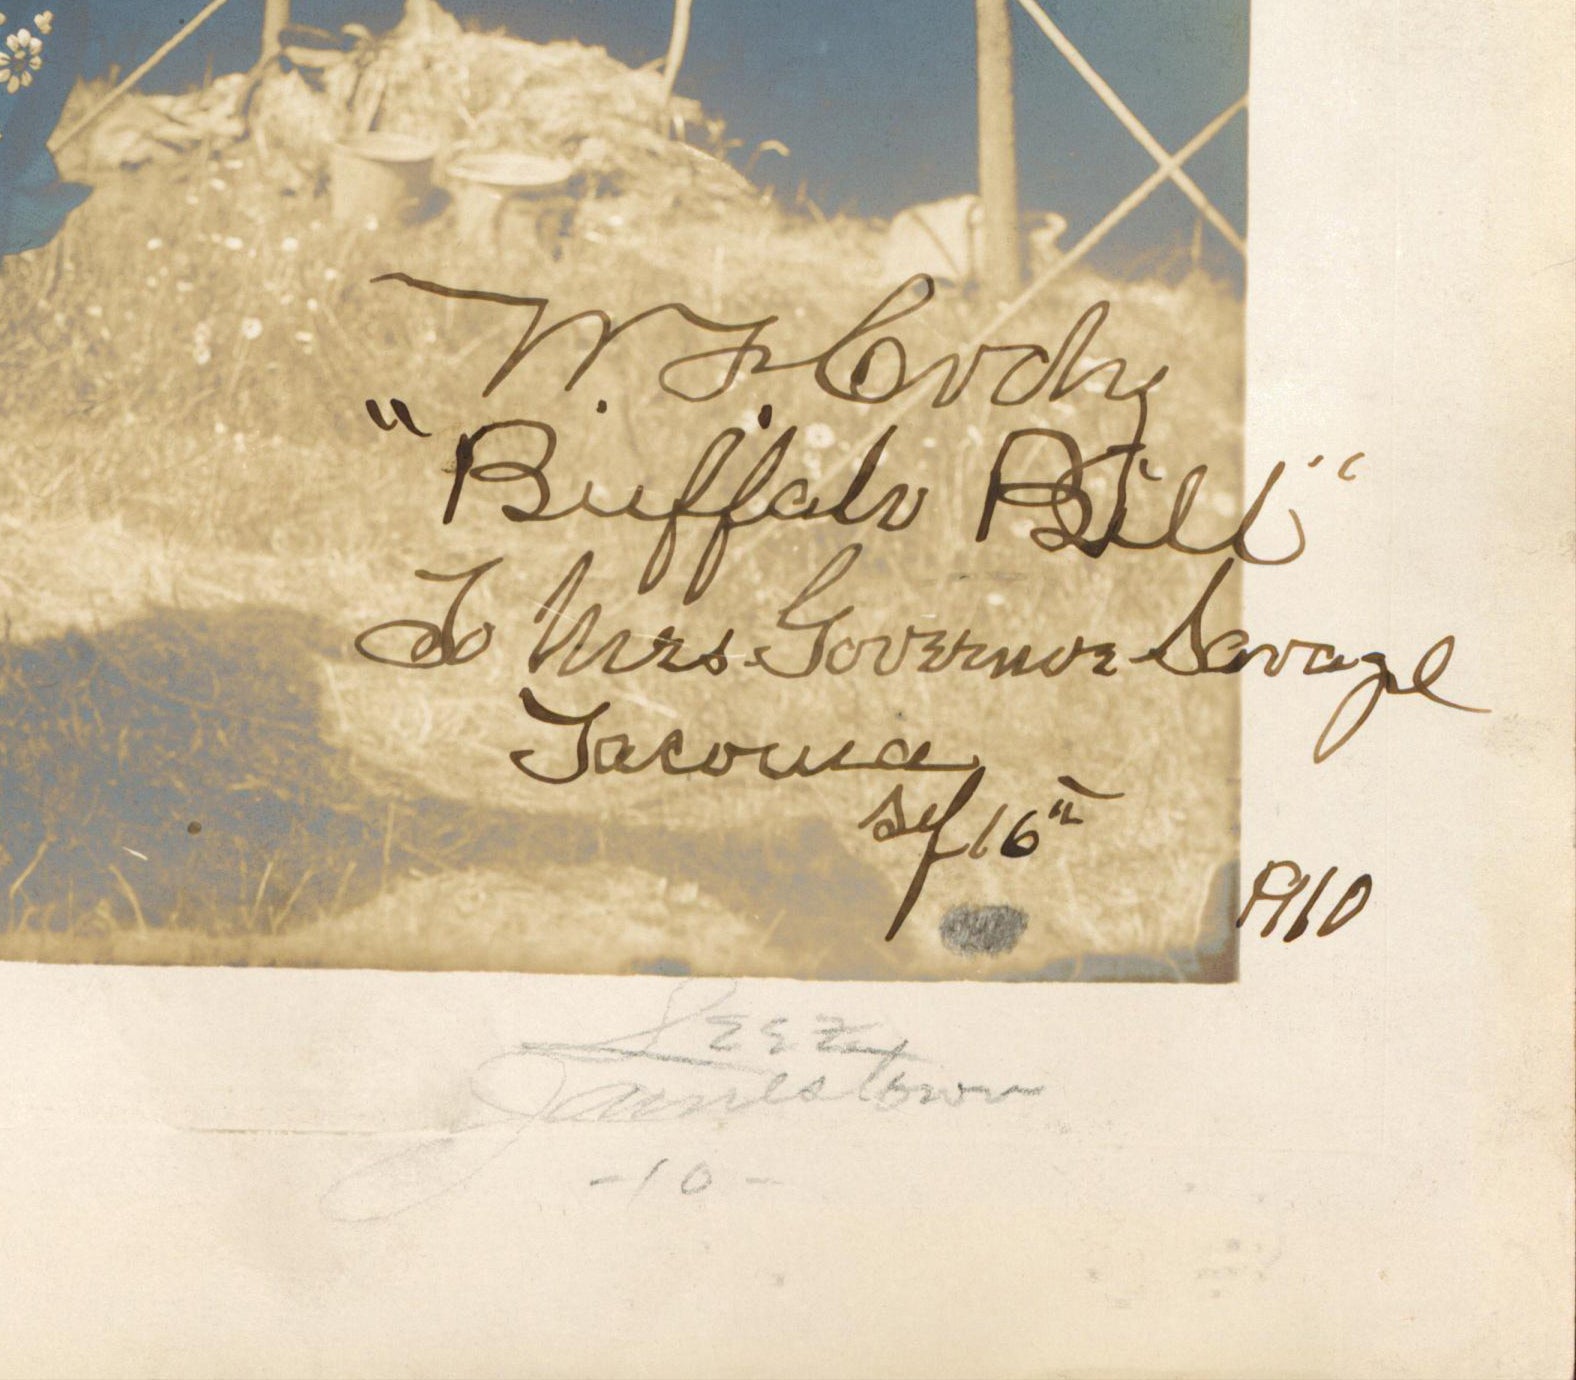 W F Cody
"Buffalo Bill"
To Mrs. Governor Savage
Tacoma
Sep 16th
1910
Jamestown
-10-